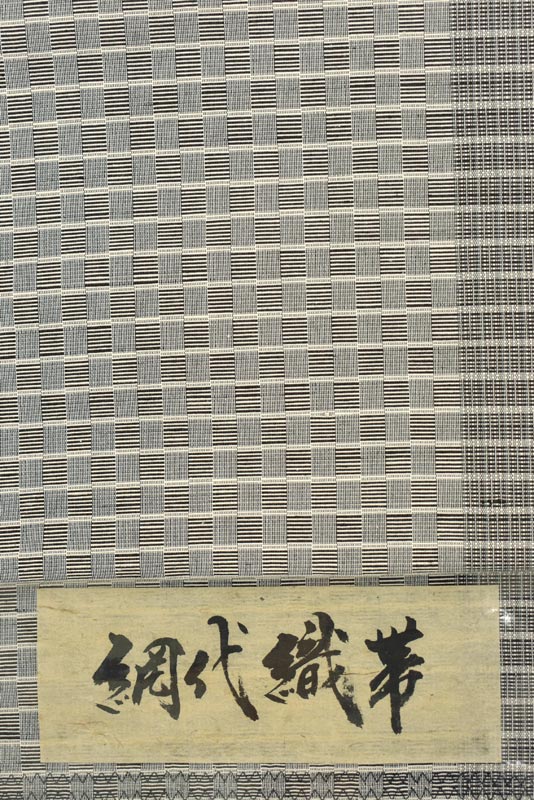 網代織帯